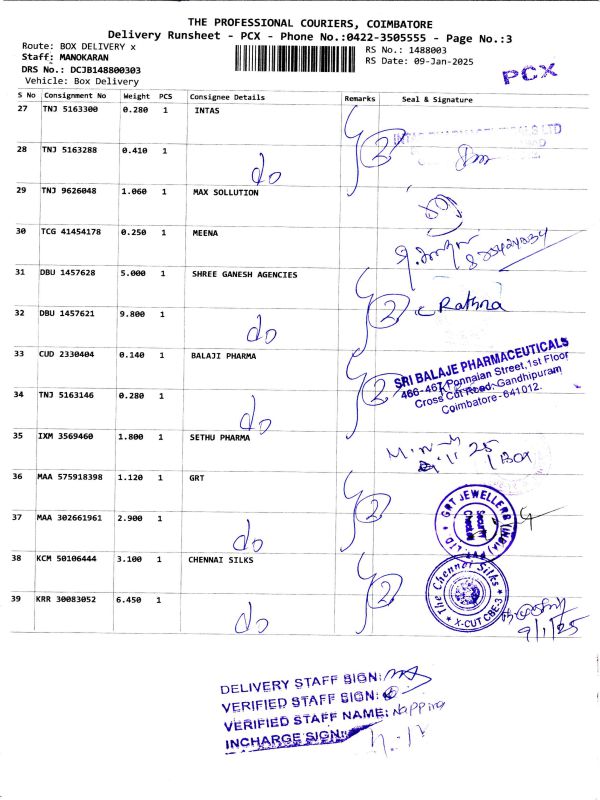 THE PROFESSIONAL COURIERS, COIMBATORE
Delivery Runsheet - PCX - Phone No.:0422-3505555 - Page No.:3
Route: BOX DELIVERY x
RS No.: 1488003
Staff: MANOKARAN
RS Date: 09-Jan-2025
DRS No.: DCJB148800303
Vehicle: Box Delivery
PCX
S No Consignment No Weight PCS Consignee Details Remarks Seal & Signature
27 TNJ 5163300 0.280 1 INTAS
2
28 TNJ 5163288 0.410 1 do
29 TNJ 9626048 1.060 1 MAX SOLLUTION
30 TCG 41454178 0.250 1 MEENA
31 DBU 1457628 5.000 1 SHREE GANESH AGENCIES
2 Rathna
32 DBU 1457621 9.800 1 do
33 CUD 2330404 0.140 1 BALAJI PHARMA
2
SRI BALAJE PHARMACEUTICALS
466-467, Ponnaian Street,1st Floor
Cross Cut Road, Gandhipuram
Coimbatore-641012.
34 TNJ 5163146 0.280 1 do
35 IXM 3569460 1.800 1 SETHU PHARMA
1 Box
36 MAA 575918398 1.120 1 GRT
2
GRT JEWELLERS (INDIA) PVT LTD
Security
Checked
37 MAA 302661961 2.900 1 do
38 KCM 50106444 3.100 1 CHENNAI SILKS
2
The Chennai Silks
X-CUT CBE-3
39 KRR 30083052 6.450 1 do
9/1/25
DELIVERY STAFF SIGN:
VERIFIED STAFF SIGN:
VERIFIED STAFF NAME:
INCHARGE SIGN: